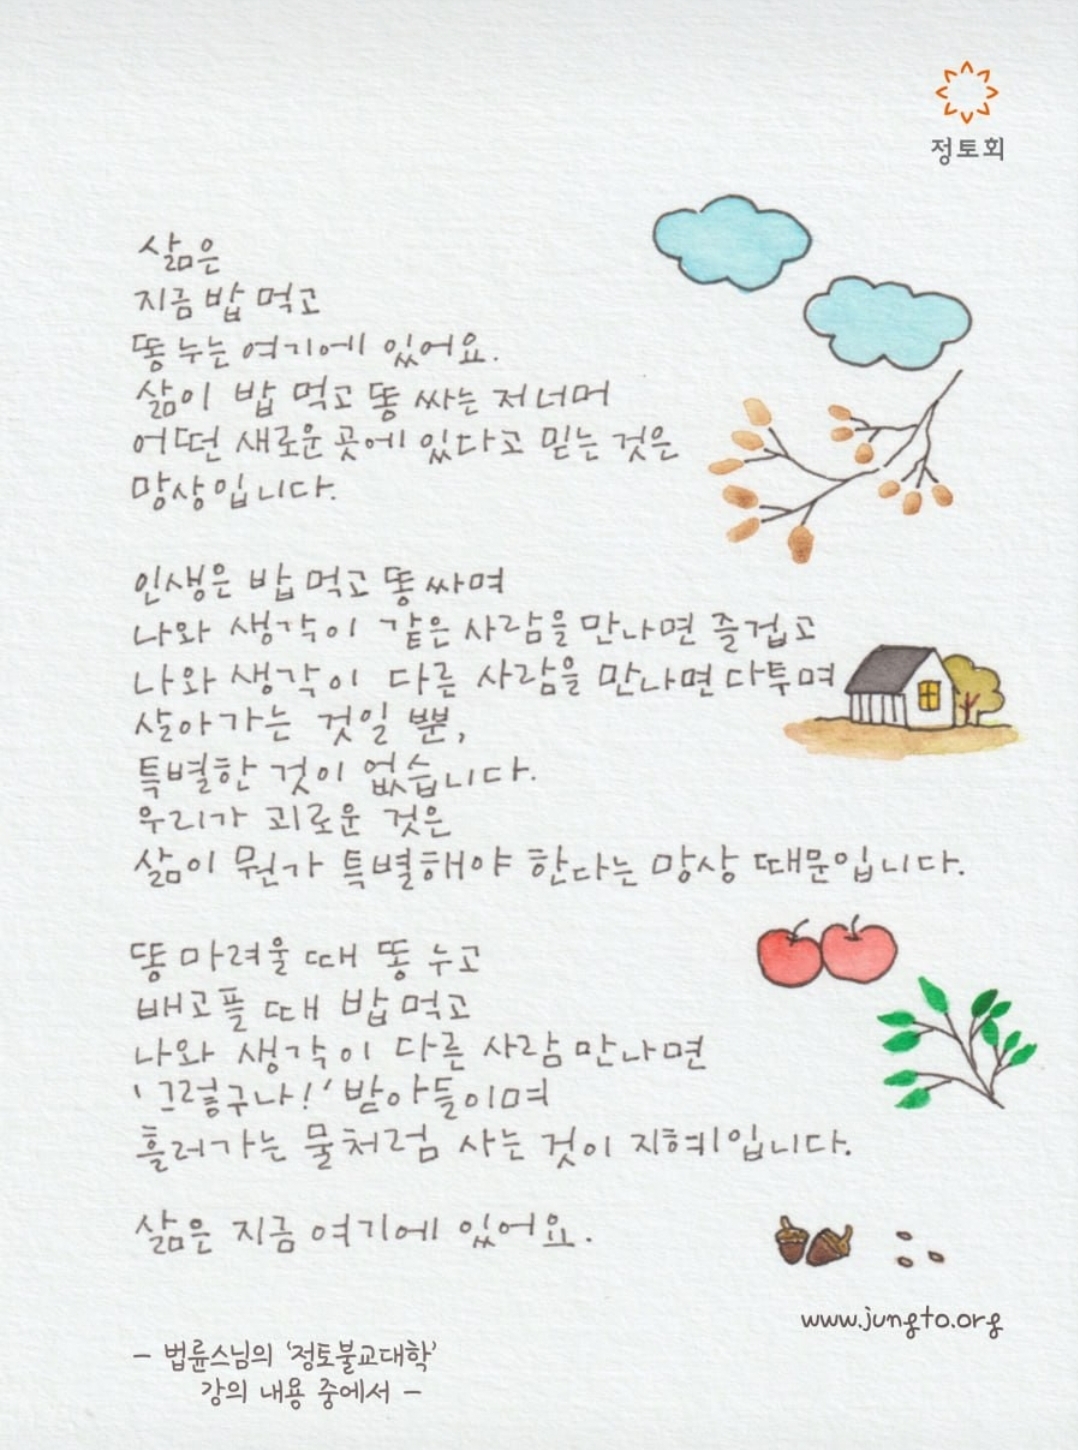 정토회
삶은
지금 밥 먹고
똥 누는 여기에 있어요.
삶이 밥 먹고 똥 싸는 저 너머
어떤 새로운 곳에 있다고 믿는 것은
망상입니다.
인생은 밥 먹고 똥 싸며
나와 생각이 같은 사람을 만나면 즐겁고
나와 생각이 다른 사람을 만나면 다투며
살아가는 것일 뿐,
특별한 것이 없습니다.
우리가 괴로운 것은
삶이 뭔가 특별해야 한다는 망상 때문입니다.
똥 마려울 때 똥 누고
배고플 때 밥 먹고
나와 생각이 다른 사람 만나면
'그렇구나!' 받아들이며
흘러가는 물처럼 사는 것이 지혜입니다.
삶은 지금 여기에 있어요.
www.jungto.org
- 법륜스님의 '정토불교대학'
강의 내용 중에서 -